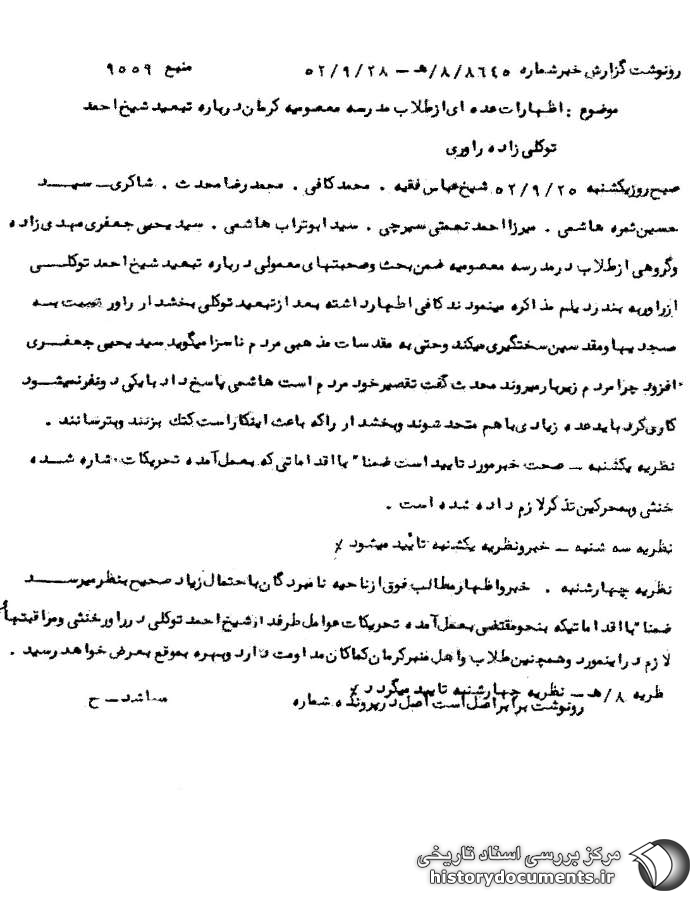 رونوشت گزارش خبر شماره ۸۶۴۵/۸/هـ – ۵۲/۹/۲۸ منبع ۹۵۵۹
موضوع : اظهارات عده ای از طلاب مدرسه معصومیه کرمان درباره تبعید شیخ احمد
توکلی زاده راوری
صبح روز یکشنبه ۵۲/۹/۲۵ شیخ عباس فقیه . محمد کافی . محمدرضا محدث . شاکری – سید
حسین ثمره هاشمی . میرزا احمد نعمتی سیرچی . سید ابوتراب هاشمی . سید یحیی جعفری مهدی زاده
وگروهی از طلاب در مدرسه معصومیه ضمن بحث وصحبتهای معمولی درباره تبعید شیخ احمد توکلی
از راور به بندر دیلم مذاکره مینمودند کافی اظهار داشته بعد از تبعید توکلی بخشدار راور نسبت به
مسجدیها ومقدسین سختگیری میکند وحتی به مقدسات مذهبی مردم ناسزا میگوید سید یحیی جعفری
افزود چرا مردم زیر بار میروند محدث گفت تقصیر خود مردم است هاشمی پاسخ داد با یکی دونفر نمیشود
کاری کرد باید عده زیادی با هم متحد شوند وبخشدار را که باعث اینکار است کتک بزنند وبترسانند .
نظریه یکشنبه – صحت خبر مورد تایید است ضمنا" با اقداماتی که بعمل آمده تحریکات اشاره شده
خنثی وبمحرکین تذکر لازم داده شده است .
نظریه سه شنبه – خبر ونظریه یکشنبه تائید میشود
نظریه چهارشنبه . خبر واظهار مطالب فوق از ناحیه نامبردگان با احتمال زیاد صحیح بنظر میرسد
ضمنا" با اقداماتیکه بنحو مقتضی بعمل آمده تحریکات عوامل طرفدار شیخ احمد توکلی در راور خنثی ومراقبتهای
لازم در اینمورد وهمچنین طلاب واهل منبر کرمان کماکان مداومت دارد وبهره بموقع بعرض خواهد رسید .
ظریه ۸/هـ – نظریه چهارشنبه تایید میگردد
رونوشت برابر اصل است اصل در پرونده شماره میباشد – ح
مرکز بررسی اسناد تاریخی
historydocuments.ir